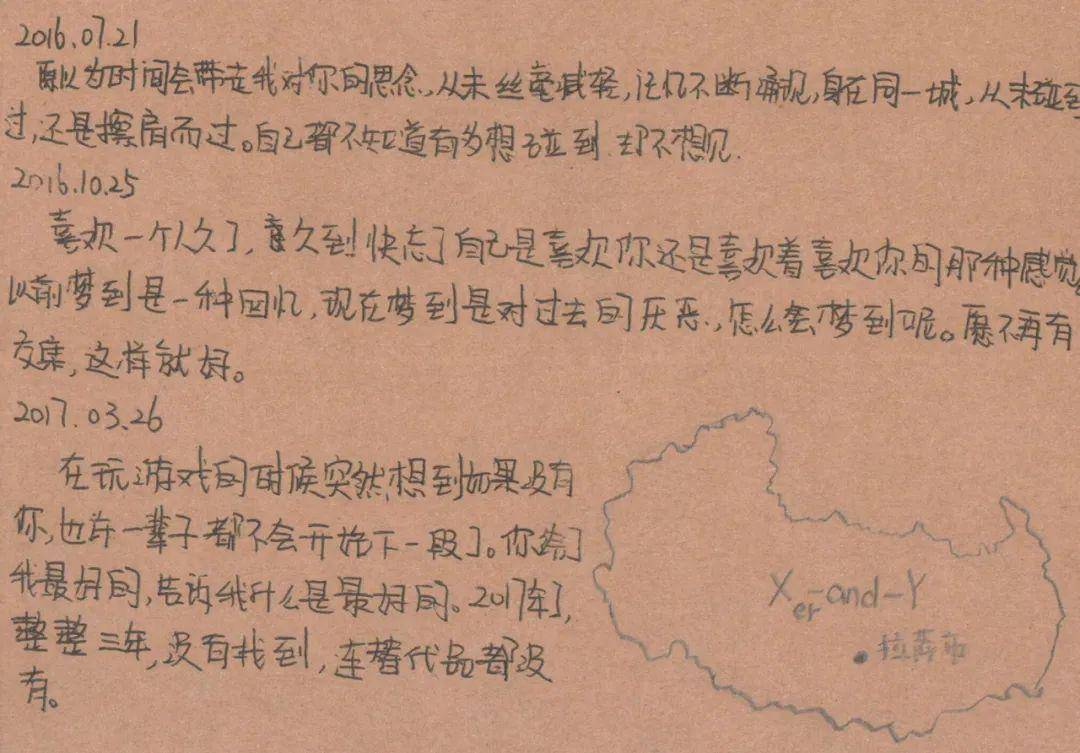 2016.07.21
原以为时间会带走我对你的思念,从未丝毫减轻,记忆不断涌现,身在同一城,从未碰到
过,还是擦肩而过。自己都不知道有多想碰到.却不想见.
2016.10.25
喜欢一个人久了,喜久到快忘了自己是喜欢你还是喜欢着喜欢你的那种感觉。
以前梦到是一种回忆,现在梦到是对过去的厌恶.,怎么会梦到呢。愿不再有
交集,这样就好。
2017.03.26
在玩游戏的时候突然想到如果没有
你,也许一辈子都不会开始下一段了。你给了
我最好的,告诉我什么是最好的。2017年了,
整整三年,没有找到,连替代品都没
有。
Xer-and-Y
拉萨市